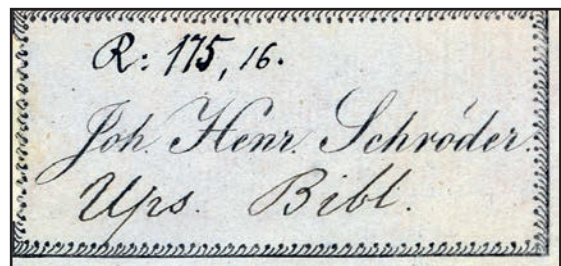 R: 175, 16.
Joh. Henr. Schröder.
Ups. Bibl.